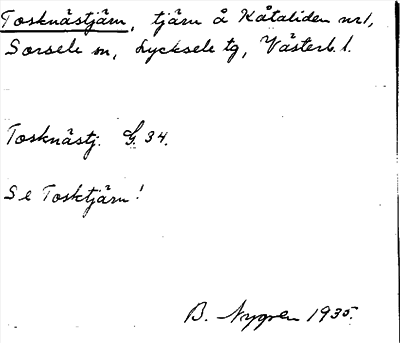 Tosknästjärn, tjärn å Kåtaliden nr 1,
Sorsele sn, Lycksele tg, Västerb. l.
Tosknästj. G. 34.
Se Tosktjärn!
B. Nygren 1935.